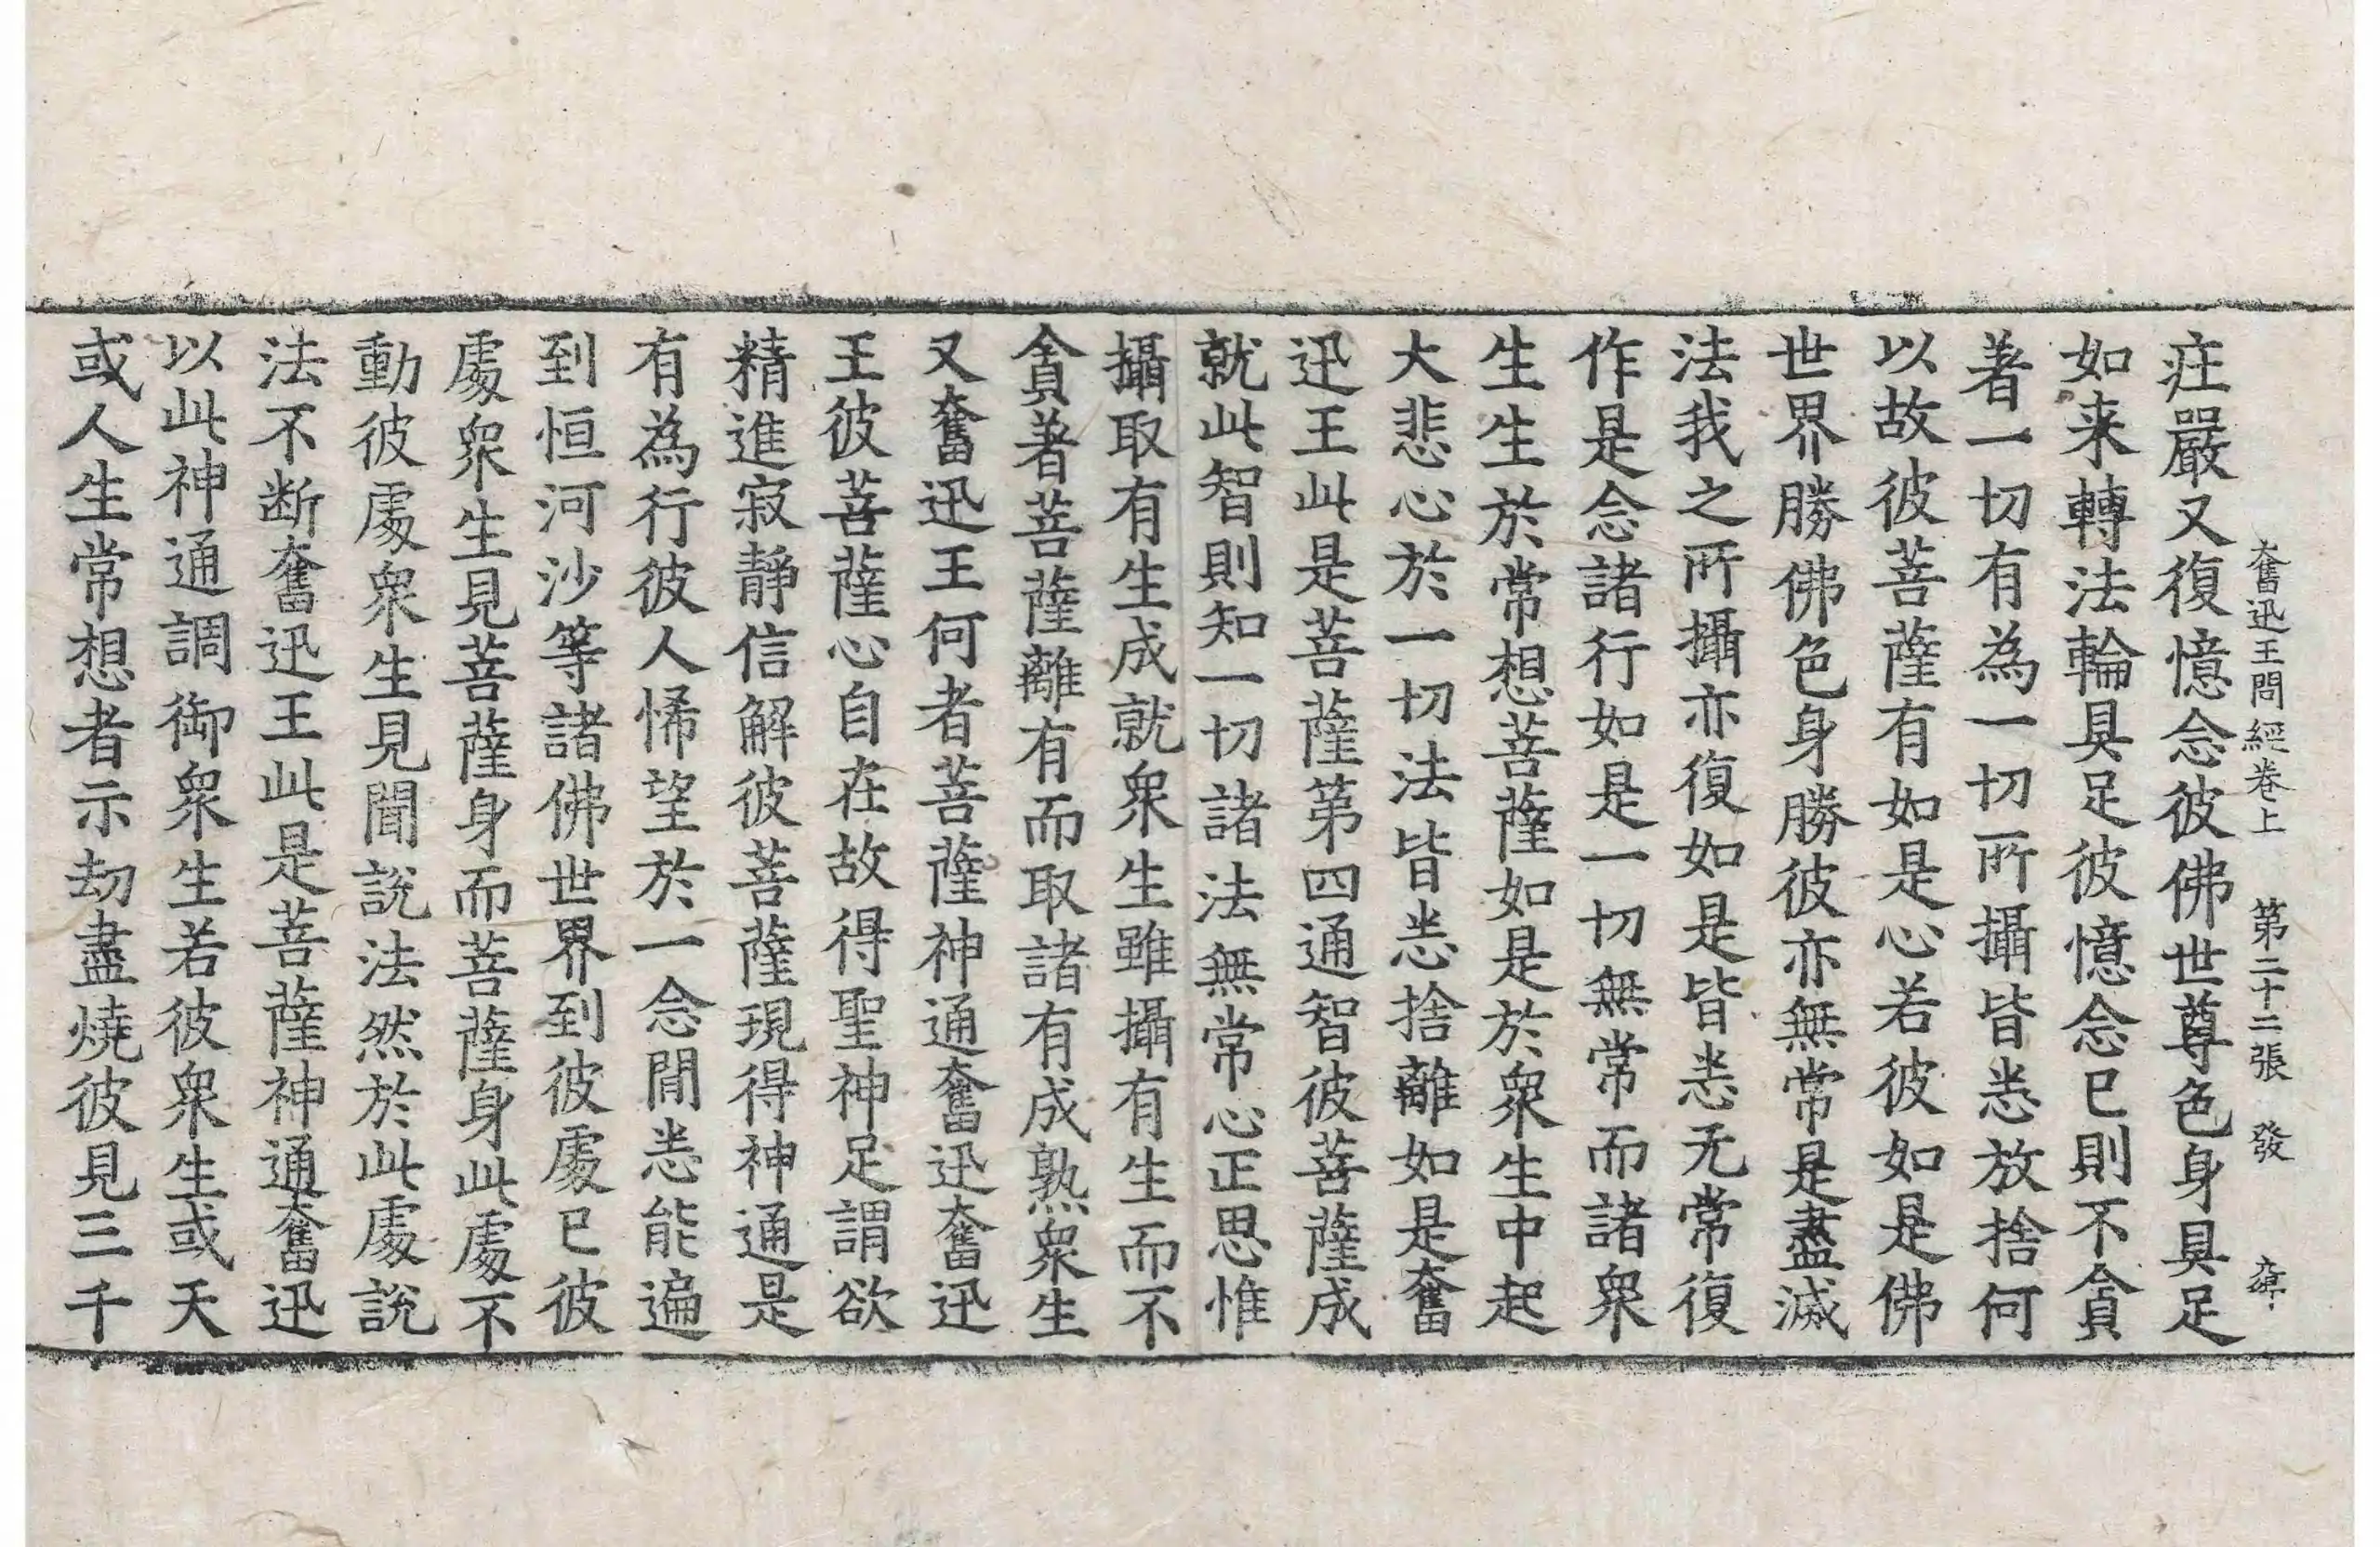 奮迅王問經卷上 第二十二張 發
疘嚴又復憶念彼佛世尊色身具足
如来轉法輪具足彼憶念已則不貪
著一切有為一切所攝皆悉放捨何
以故彼菩薩有如是心若彼如是佛
世界勝佛色身勝彼亦無常是盡滅
法我之所攝亦復如是皆悉无常復
作是念諸行如是一切無常而諸衆
生生於常想菩薩如是於衆生中起
大悲心於一切法皆悉捨離如是奮
迅王此是菩薩第四通智彼菩薩成
就此智則知一切諸法無常心正思惟
攝取有生成就衆生雖攝有生而不
貪著菩薩離有而取諸有成熟衆生
又奮迅王何者菩薩神通奮迅奮迅
王彼菩薩心自在故得聖神足謂欲
精進寂靜信解彼菩薩現得神通是
有為行彼人悕望於一念閒悉能遍
到恒河沙等諸佛世界到彼處已彼
處衆生見菩薩身而菩薩身此處不
動彼處衆生見聞說法然於此處說
法不断奮迅王此是菩薩神通奮迅
以此神通調御衆生若彼衆生或天
或人生常想者示劫盡燒彼見三千